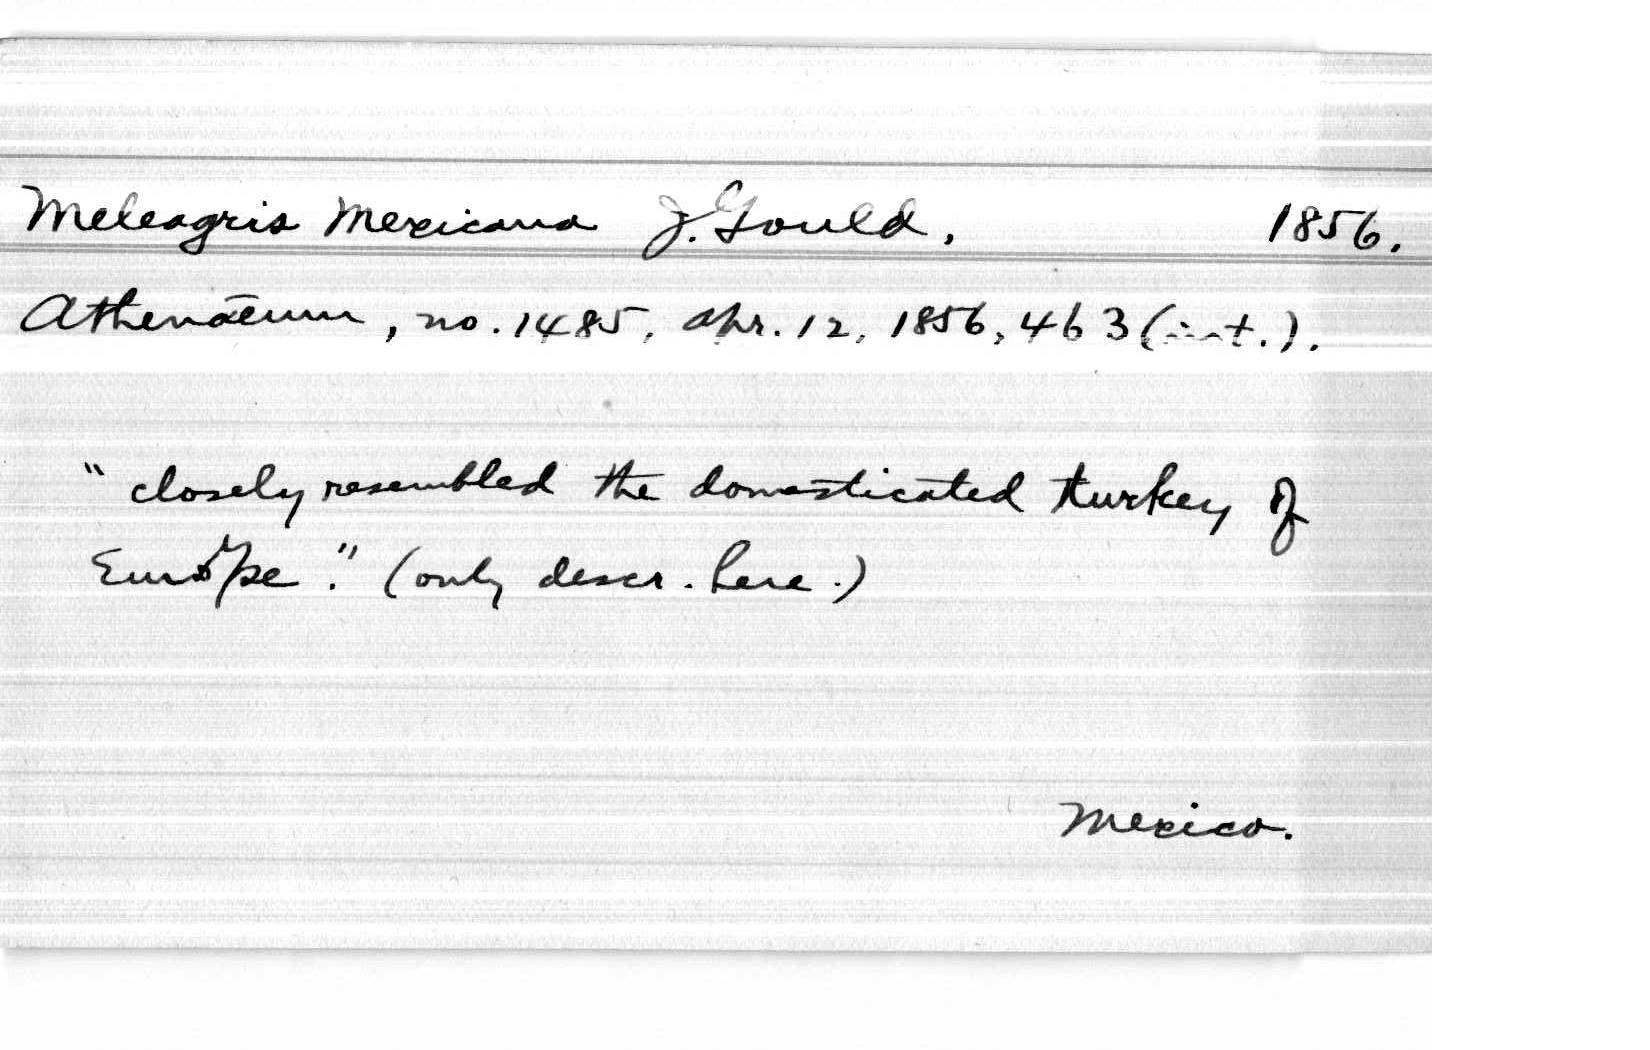 Meleagris Mexicana J. Gould, 1856.
Athenaeum, no. 1485, Apr. 12, 1856, 463
"closely resembled the domesticated turkey of
Europe." (only descr. here.)
Mexico.